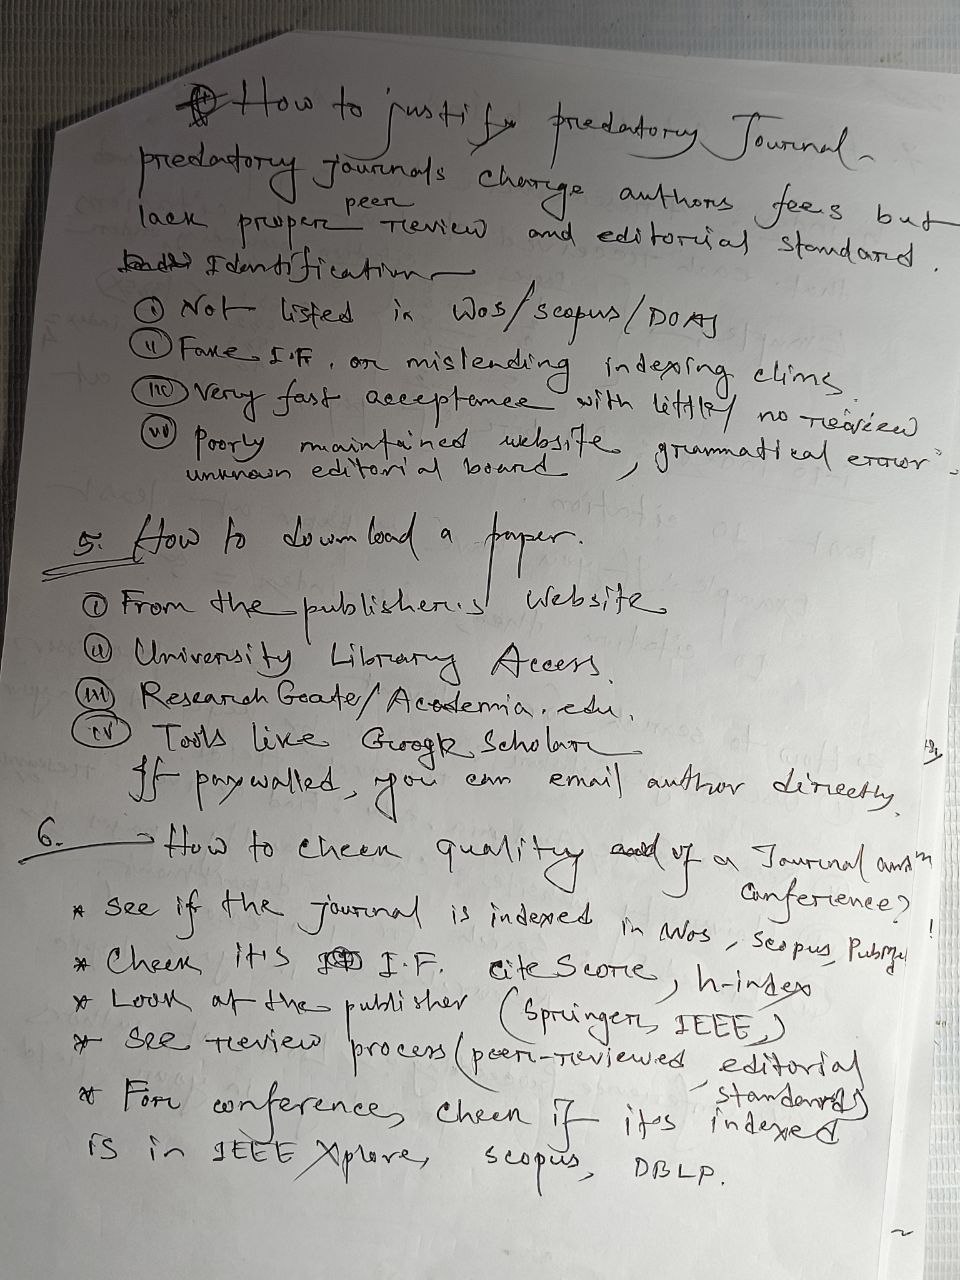 How to justify predatory Journal-
predatory journals charge authors fees but
lack proper peer review and editorial standard.
Identification
(i) Not listed in Wos/scopus/DOAJ
(ii) Fake I.F. or misleading indexing clims
(iii) Very fast acceptance with little/ no review
(vi) Poorly maintained website, grammatical error,
unknown editorial board
5. How to download a paper.
(i) From the publisher's website
(ii) University Library Access.
(iii) Research Geate/Academia.edu.
(iv) Tools like Google Scholar
If paywalled, you can email author directly.
6. How to check quality of a Journal and
Conference?
* see if the journal is indexed in Wos, Scopus, PubMed
* Check it's I.F. cite Score, h-index
* Look at the publisher (Springer, IEEE,)
* See review process (peer-reviewed, editorial
standards)
* For conference, check if it's indexed
is in IEEE Xplore, scopus, DBLP.